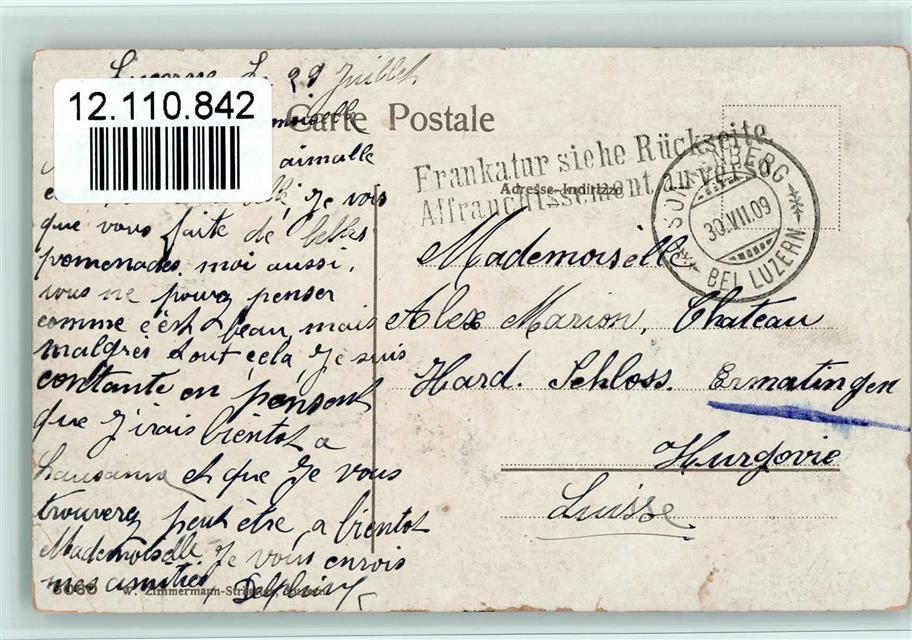 Lucerne Le 29 Juillet
12.110.842
Carte Postale
aimable
Je vois
que vous faite de belles
promenades. moi aussi,
vous ne pouvez penser
comme c'est beau, mais
malgrés tout cela, Je suis
contante en pensent
que J'irais bientot a
Lausanne et que Je vous
trouverez peut être a bientot
Mademoiselle Je vous envois
mes amitiés Delphine
W. Zimmermann-Strässle, Luzern
Frankatur siehe Rückseite
Affranchissement au verso
Adresse-Indirizzo
SONNENBERG
30.VII.09
BEI LUZERN
Mademoiselle
Alex Marion, Chateau
Hard. Schloss. Ermatingen
Thurgovie
Suisse